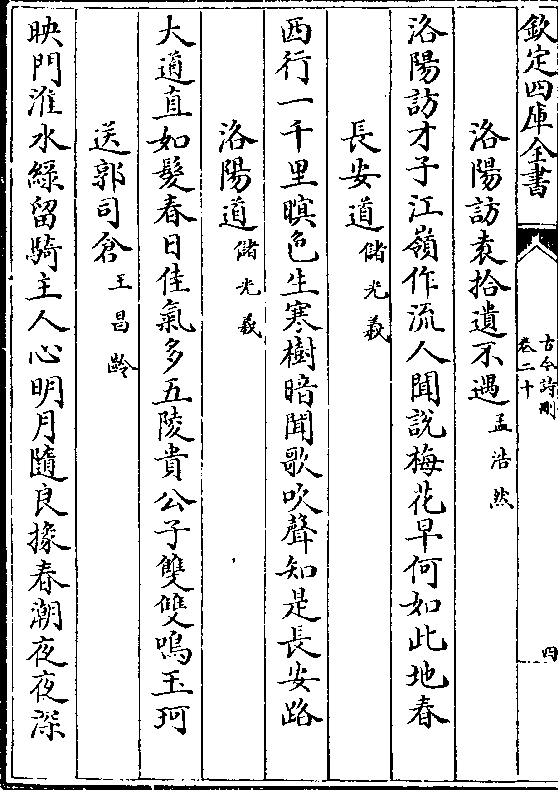 欽定四庫全書
古今詩刪
卷二十
四
洛陽訪袁拾遺不遇孟浩然
洛陽訪才子江嶺作流人聞說梅花早何如此地春
長安道儲光羲
西行一千里暝色生寒樹暗聞歌吹聲知是長安路
洛陽道儲光羲
大道直如髮春日佳氣多五陵貴公子雙雙鳴玉珂
送郭司倉王昌齡
映門淮水綠留騎主人心明月隨良掾春潮夜夜深